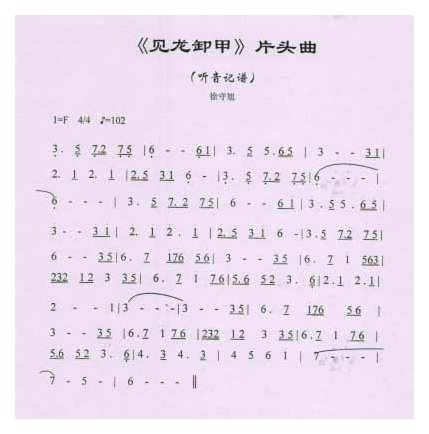 《见龙卸甲》片头曲
（听音记谱）
徐守旭
1=F 4/4 ♪=102
3. 5 7.2 75 |6 - - 61| 3. 5 5.65 | 3 - - 31|
2. 1 2. 1 |2.5 31 6 - |3. 5 7.2 75|6 - - - |
6 - - - | 3. 5 7.2 75| 6 - - 61 |3.55.65|
3 - - 31| 2. 1 2. 1 | 2.5 31 6 -|3.5 7.2 75|
6 - - 35|6. 7 176 56| 3 - - 35 |6. 7 1 563|
232 12 3 35| 6. 7 1 76|5.6 52 3. 6|2.1 2.1|
2 - - 1|3 - - -|3 - - 35| 6. 7 176 56 |
3 - - 35 |6.7 176 |232 12 3 35|6.7 1 76|
5.6 52 3. 6|4. 3 4. 3 | 4 5 6 1 | 7 - - - |
7 - 5 - | 6 - - - ‖